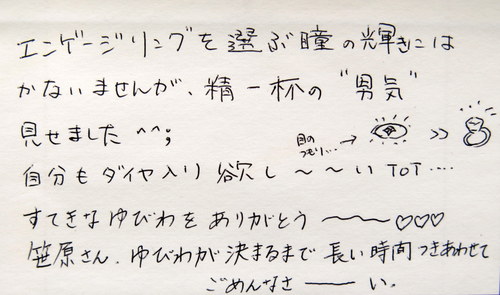 エンゲージリングを選ぶ瞳の輝きには
かないませんが、精一杯の"男気"
見せました^^;
目の
つもり… → >>
自分もダイヤ入り欲し〜〜い TOT ‥‥
すてきなゆびわをありがとう〜〜♡♡♡
笹原さん、ゆびわが決まるまで長い時間つきあわせて
ごめんなさ――い。